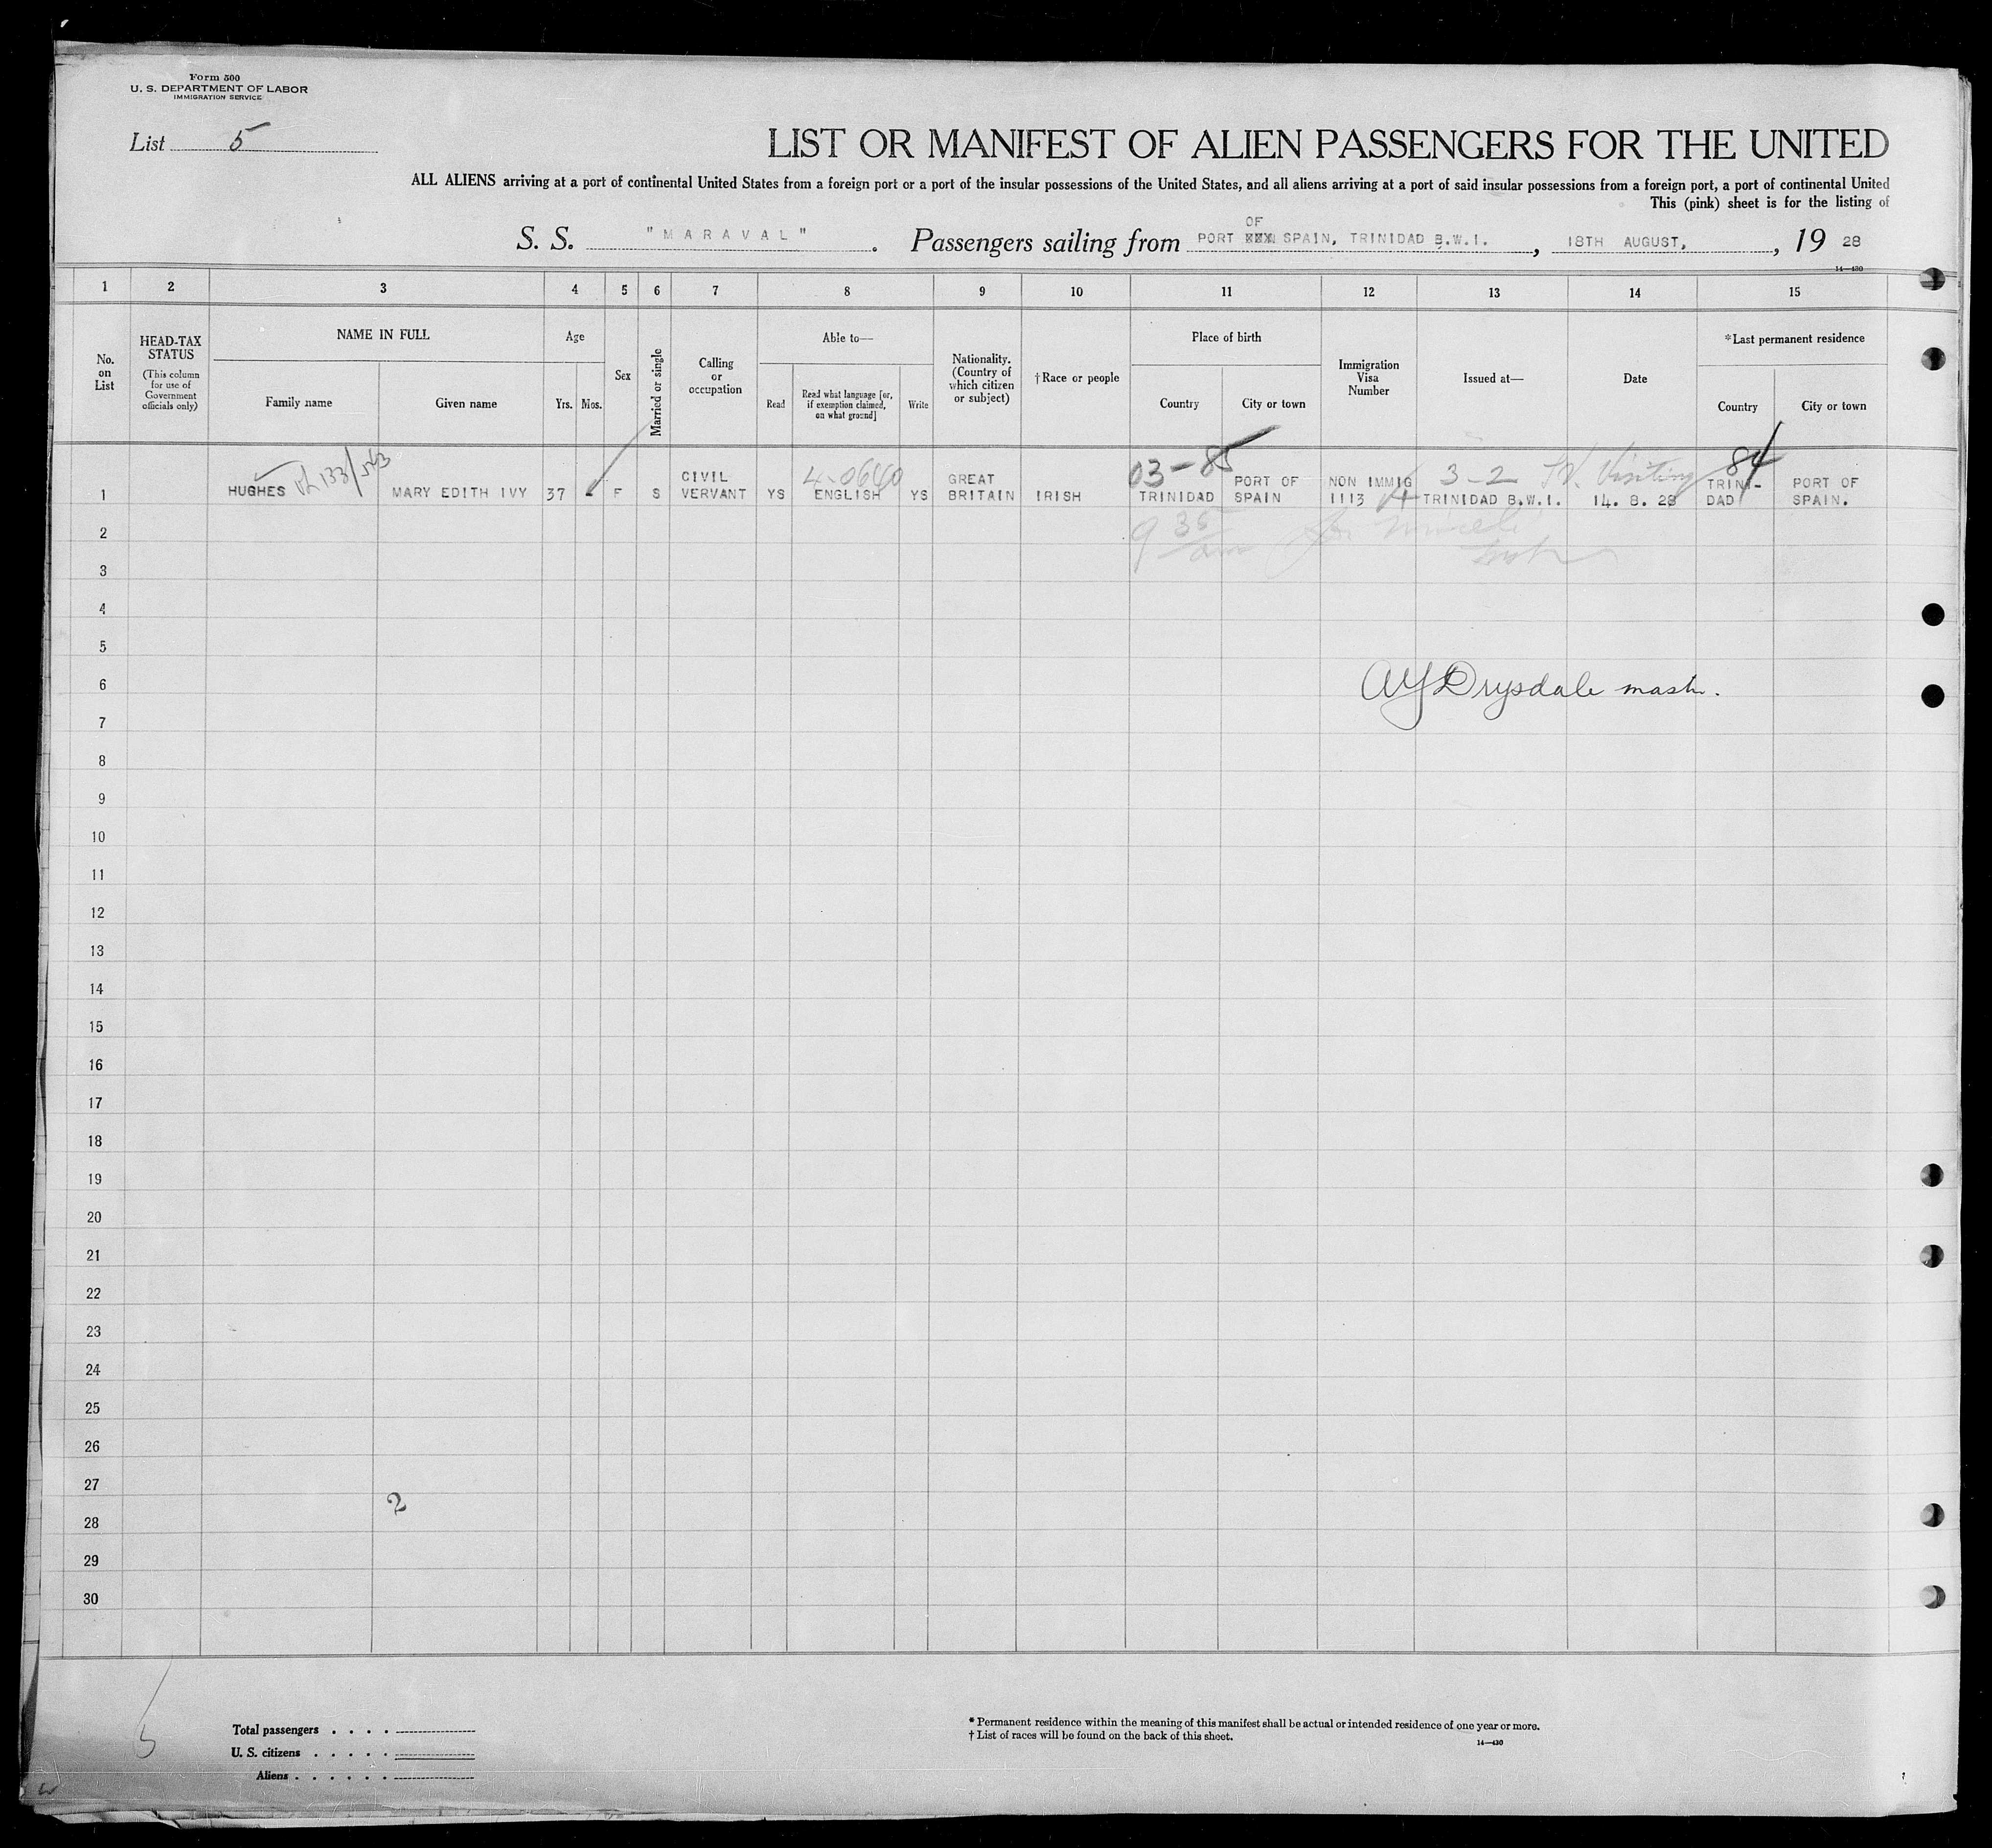 Form 500
U. S. DEPARTMENT OF LABOR
IMMIGRATION SERVICE
List 5
LIST OR MANIFEST OF ALIEN PASSENGERS FOR THE UNITED
ALL ALIENS arriving at a port of continental United States from a foreign port or a port of the insular possessions of the United States, and all aliens arriving at a port of said insular possessions from a foreign port, a port of continental United
This (pink) sheet is for the listing of
OF
S. S. "MARAVAL". Passengers sailing from PORT SPAIN, TRINIDAD B.W.I., 18TH AUGUST, , 19 28
14—430
1 2 3 4 5 6 7 8 9 10 11 12 13 14 15
No. on List
HEAD-TAX STATUS
(This column for use of Government officials only)
NAME IN FULL
Family name
Given name
Age
Yrs.
Mos.
Sex
Married or single
Calling or occupation
Able to—
Read
Read what language [or, if exemption claimed, on what ground]
Write
Nationality. (Country of which citizen or subject)
†Race or people
Place of birth
Country
City or town
Immigration Visa Number
Issued at—
Date
*Last permanent residence
Country
City or town
133/543
4-0640
03-85
3-2
Visiting
84
CIVIL GREAT PORT OF NON IMMIG TRINI- PORT OF
1 HUGHES MARY EDITH IVY 37 - F S VERVANT YS ENGLISH YS BRITAIN IRISH TRINIDAD SPAIN 1113 TRINIDAD B.W.I. 14. 8. 28 DAD SPAIN.
2
9 35
3
4
5
6
AY Drysdale mastr.
7
8
9
10
11
12
13
14
15
16
17
18
19
20
21
22
23
24
25
26
27
2
28
29
30
Total passengers . . . .
U. S. citizens . . . . .
Aliens . . . . . .
* Permanent residence within the meaning of this manifest shall be actual or intended residence of one year or more.
† List of races will be found on the back of this sheet.
14—430